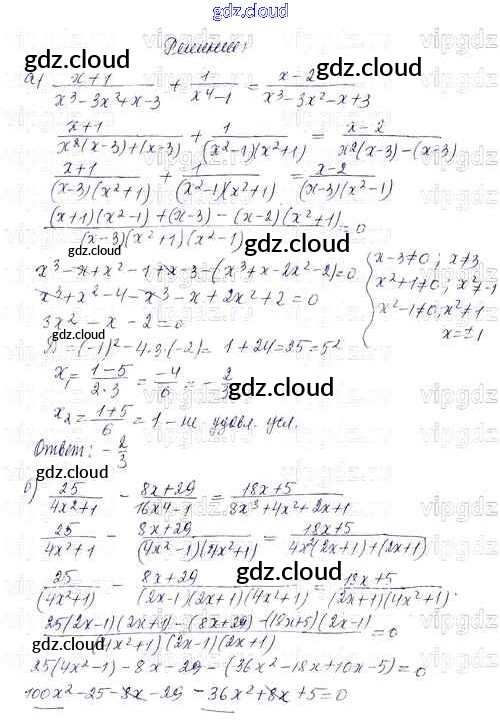 gdz.cloud
Решение:
а) (x+1)/(x³-3x²+x-3) + 1/(x⁴-1) = (x-2)/(x³-3x²-x+3)
(x+1)/(x²(x-3)+(x-3)) + 1/((x²-1)(x²+1)) = (x-2)/(x²(x-3)-(x-3))
(x+1)/((x-3)(x²+1)) + 1/((x²-1)(x²+1)) = (x-2)/((x-3)(x²-1))
((x+1)(x²-1)+(x-3)-(x-2)(x²+1))/((x-3)(x²+1)(x²-1)) = 0
x³-x+x²-1+x-3-(x³+x-2x²-2)=0
x³+x²-4-x³-x+2x²+2=0
3x²-x-2=0
Д=(-1)²-4·3·(-2)=1+24=25=5²
x₁=(1-5)/(2·3)=-4/6=-2/3
x₂=(1+5)/6=1-не удовл. усл.
x-3≠0; x≠3
x²+1≠0; x²≠-1
x²-1≠0; x²≠1
x≠±1
Ответ: -2/3
б) 25/(4x²+1) - (8x+29)/(16x⁴-1) = (18x+5)/(8x³+4x²+2x+1)
25/(4x²+1) - (8x+29)/((4x²-1)(4x²+1)) = (18x+5)/(4x²(2x+1)+(2x+1))
25/(4x²+1) - (8x+29)/((2x-1)(2x+1)(4x²+1)) = (18x+5)/((2x+1)(4x²+1))
(25(2x-1)(2x+1)-(8x+29)-(18x+5)(2x-1))/((4x²+1)(2x-1)(2x+1)) = 0
25(4x²-1)-8x-29-(36x²-18x+10x-5)=0
100x²-25-8x-29-36x²+8x+5=0